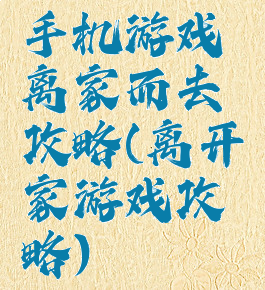 手机游戏
离家而去
攻略(离开
家游戏攻
略)